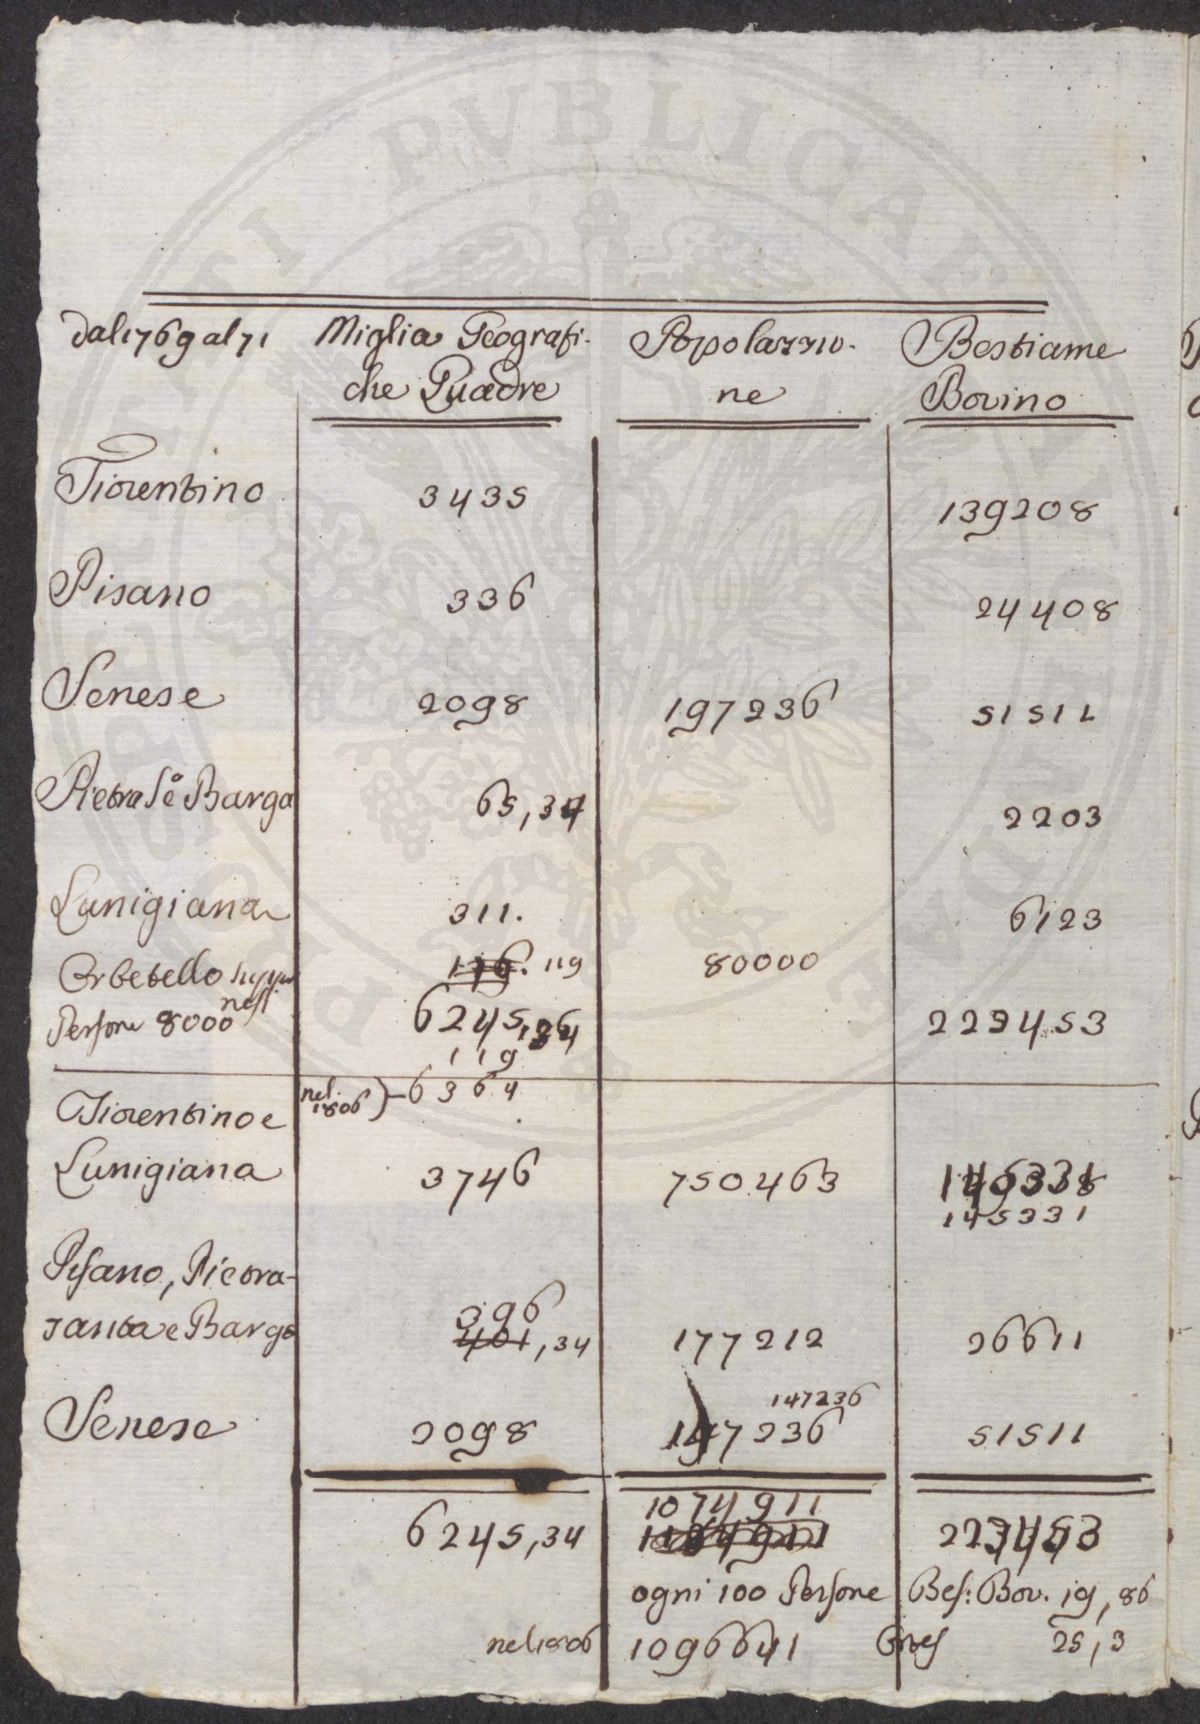 dal 1769 al 71 Miglia Geografi- Popolazzio- Bestiame
che Quadre ne Bovino
Fiorentino 3435 139208
Pisano 336 24408
Senese 2098 197236 51511
Pietra Sª Barga 65,34 2203
Lunigiana 311. 6123
Orbetello 116. 119 80000
Persone 8000 6245,34 223453
119
nel 1806)-6364
Fiorentino e
Lunigiana 3746 750463
145331
Pisano, Pietra-
396
santa e Barga 401,34 177212 26611
147236
Senese 2098 197236 51511
1074911
6245,34 223453
ogni 100 Persone Bes: Bov. 19,86
nel 1806 1096641 25,3
PUBLICAE